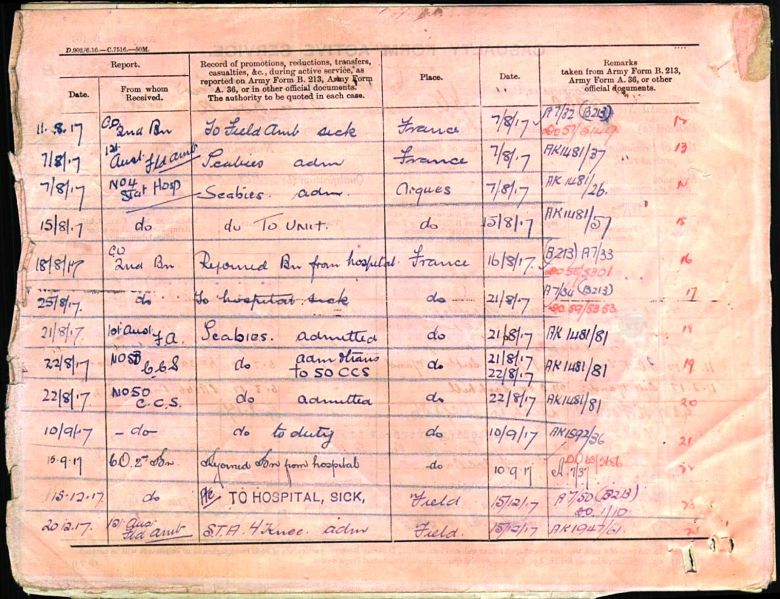 D.902/6.16.—C.7516.—50M.
Report.
Record of promotions, reductions, transfers, casualties, &c., during active service, as reported on Army Form B. 213, Army Form A. 36, or in other official documents. The authority to be quoted in each case.
Place.
Date.
Remarks
taken from Army Form B. 213, Army Form A. 36, or other official documents.
Date.
From whom Received.
11.8.17 CO 2nd Bn To Field Amb sick France 7/8/17 A7/32 (B213) 12
7/8/17 1st Aust Fld Amb Scabies adm France 7/8/17 AK1481/37 13
7/8/17 No 4 Stat Hosp Scabies. adm. Arques 7/8/17 AK1481/26. 14
15/8/17 do do To Unit. do 15/8/17 AK1481/57 15
18/8/17 CO 2nd Bn Rejoined Bn from hospital France 16/8/17 (B213) A7/33 16
25/8/17. do To hospital sick do 21/8/17 A7/34 (B213) 17
21/8/17. 1st Aust F.A. Scabies. admitted do 21/8/17 AK1481/81 18
22/8/17 CCS do adm & trans to 50 CCS do 21/8/17 22/8/17 AK1481/81 19
22/8/17. No 50 C.C.S. do admitted do 22/8/17 AK1481/81 20
10/9/17 -do- do to duty do 10/9/17 AK1592/36 21
15.9.17 Rejoined Bn from hospital do 10.9.17
15.12.17. do TO HOSPITAL, SICK, Field 15/12/17 A7/50 (B213)
1st Aus Fld Amb Knee. adm Field. 15/12/17 AK1947/61.